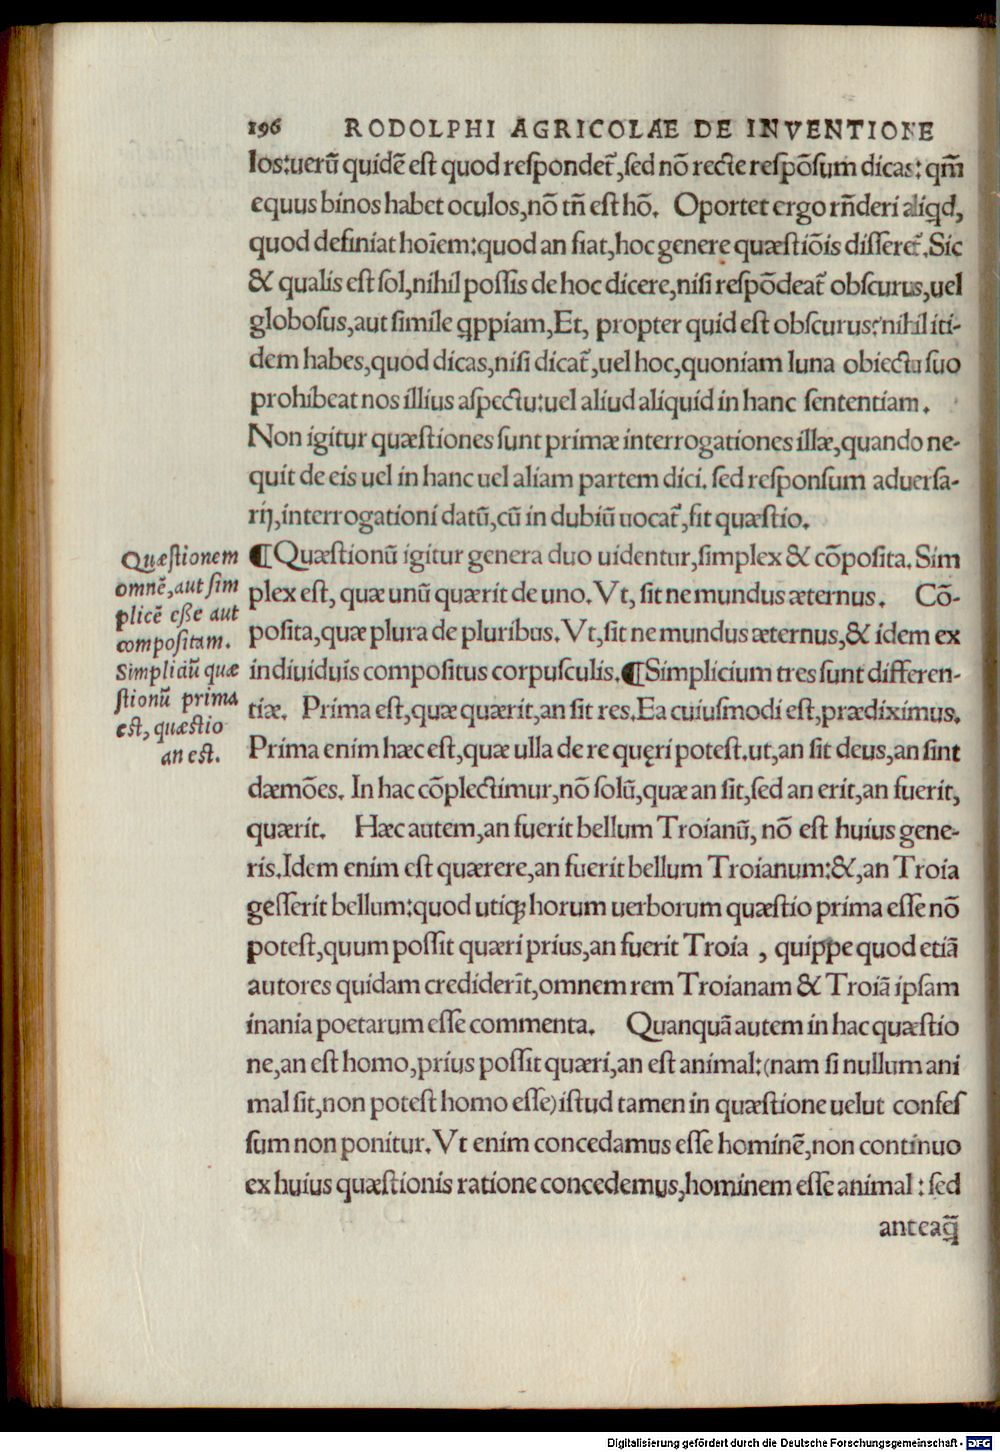 196 RODOLPHI AGRICOLAE DE INVENTIONE
los:uerũ quidẽ eſt quod reſpondet᷑,ſed nõ recte reſpõſum dicas: qm̃
equus binos habet oculos,nõ tñ eſt hõ. Oportet ergo rñderi aliꝗd,
quod definiat hoĩem:quod an fiat,hoc genere quæſtiõis differet᷑.Sic
& qualis eſt ſol,nihil poſſis de hoc dicere,niſi reſpõdeat᷑ obſcurus,uel
globoſus,aut ſimile ꝗppiam,Et, propter quid eſt obſcurus?nihil iti-
dem habes,quod dicas,niſi dicat᷑,uel hoc,quoniam luna obiectu ſuo
prohibeat nos illius aſpectu:uel aliud aliquid in hanc ſententiam.
Non igitur quæſtiones ſunt primæ interrogationes illæ,quando ne-
quit de eis uel in hanc uel aliam partem dici. ſed reſponſum aduerſa-
rij,interrogationi datũ,cũ in dubiũ uocat᷑,fit quæſtio.
¶Quæſtionũ igitur genera duo uidentur,ſimplex & cõpoſita. Sim
plex eſt, quæ unũ quærit de uno. Vt, ſit ne mundus æternus. Cõ-
poſita,quæ plura de pluribus. Vt,ſit ne mundus æternus,& idem ex
indiuiduis compoſitus corpuſculis.¶Simplicium tres ſunt differen-
tiæ. Prima eſt,quæ quærit,an ſit res.Ea cuiuſmodi eſt,prædiximus.
Prima enim hæc eſt,quæ ulla de re quęri poteſt.ut,an ſit deus,an ſint
dæmões. In hac cõplectimur,nõ ſolũ,quæ an ſit,ſed an erit,an fuerit,
quærit. Hæc autem,an fuerit bellum Troianũ, nõ eſt huius gene-
ris.Idem enim eſt quærere,an fuerit bellum Troianum:&,an Troia
geſſerit bellum:quod utiqꝫ horum uerborum quæſtio prima eſſe nõ
poteſt,quum poſſit quæri prius,an fuerit Troia , quippe quod etiã
autores quidam crediderĩt,omnem rem Troianam & Troiã ipſam
inania poetarum eſſe commenta. Quanquã autem in hac quæſtio
ne,an eſt homo,prius poſſit quæri,an eſt animal:(nam ſi nullum ani
mal ſit,non poteſt homo eſſe)iſtud tamen in quæſtione uelut confeſ
ſum non ponitur. Vt enim concedamus eſſe hominẽ,non continuo
ex huius quæſtionis ratione concedemus,hominem eſſe animal : ſed
anteaq̃
Quæſtionem
omnẽ,aut ſim
plicẽ eſſe aut
compoſitam.
Simpliciũ quæ
ſtionũ prima
eſt, quæſtio
an eſt.
Digitalisierung gefördert durch die Deutsche Forschungsgemeinschaft - DFG